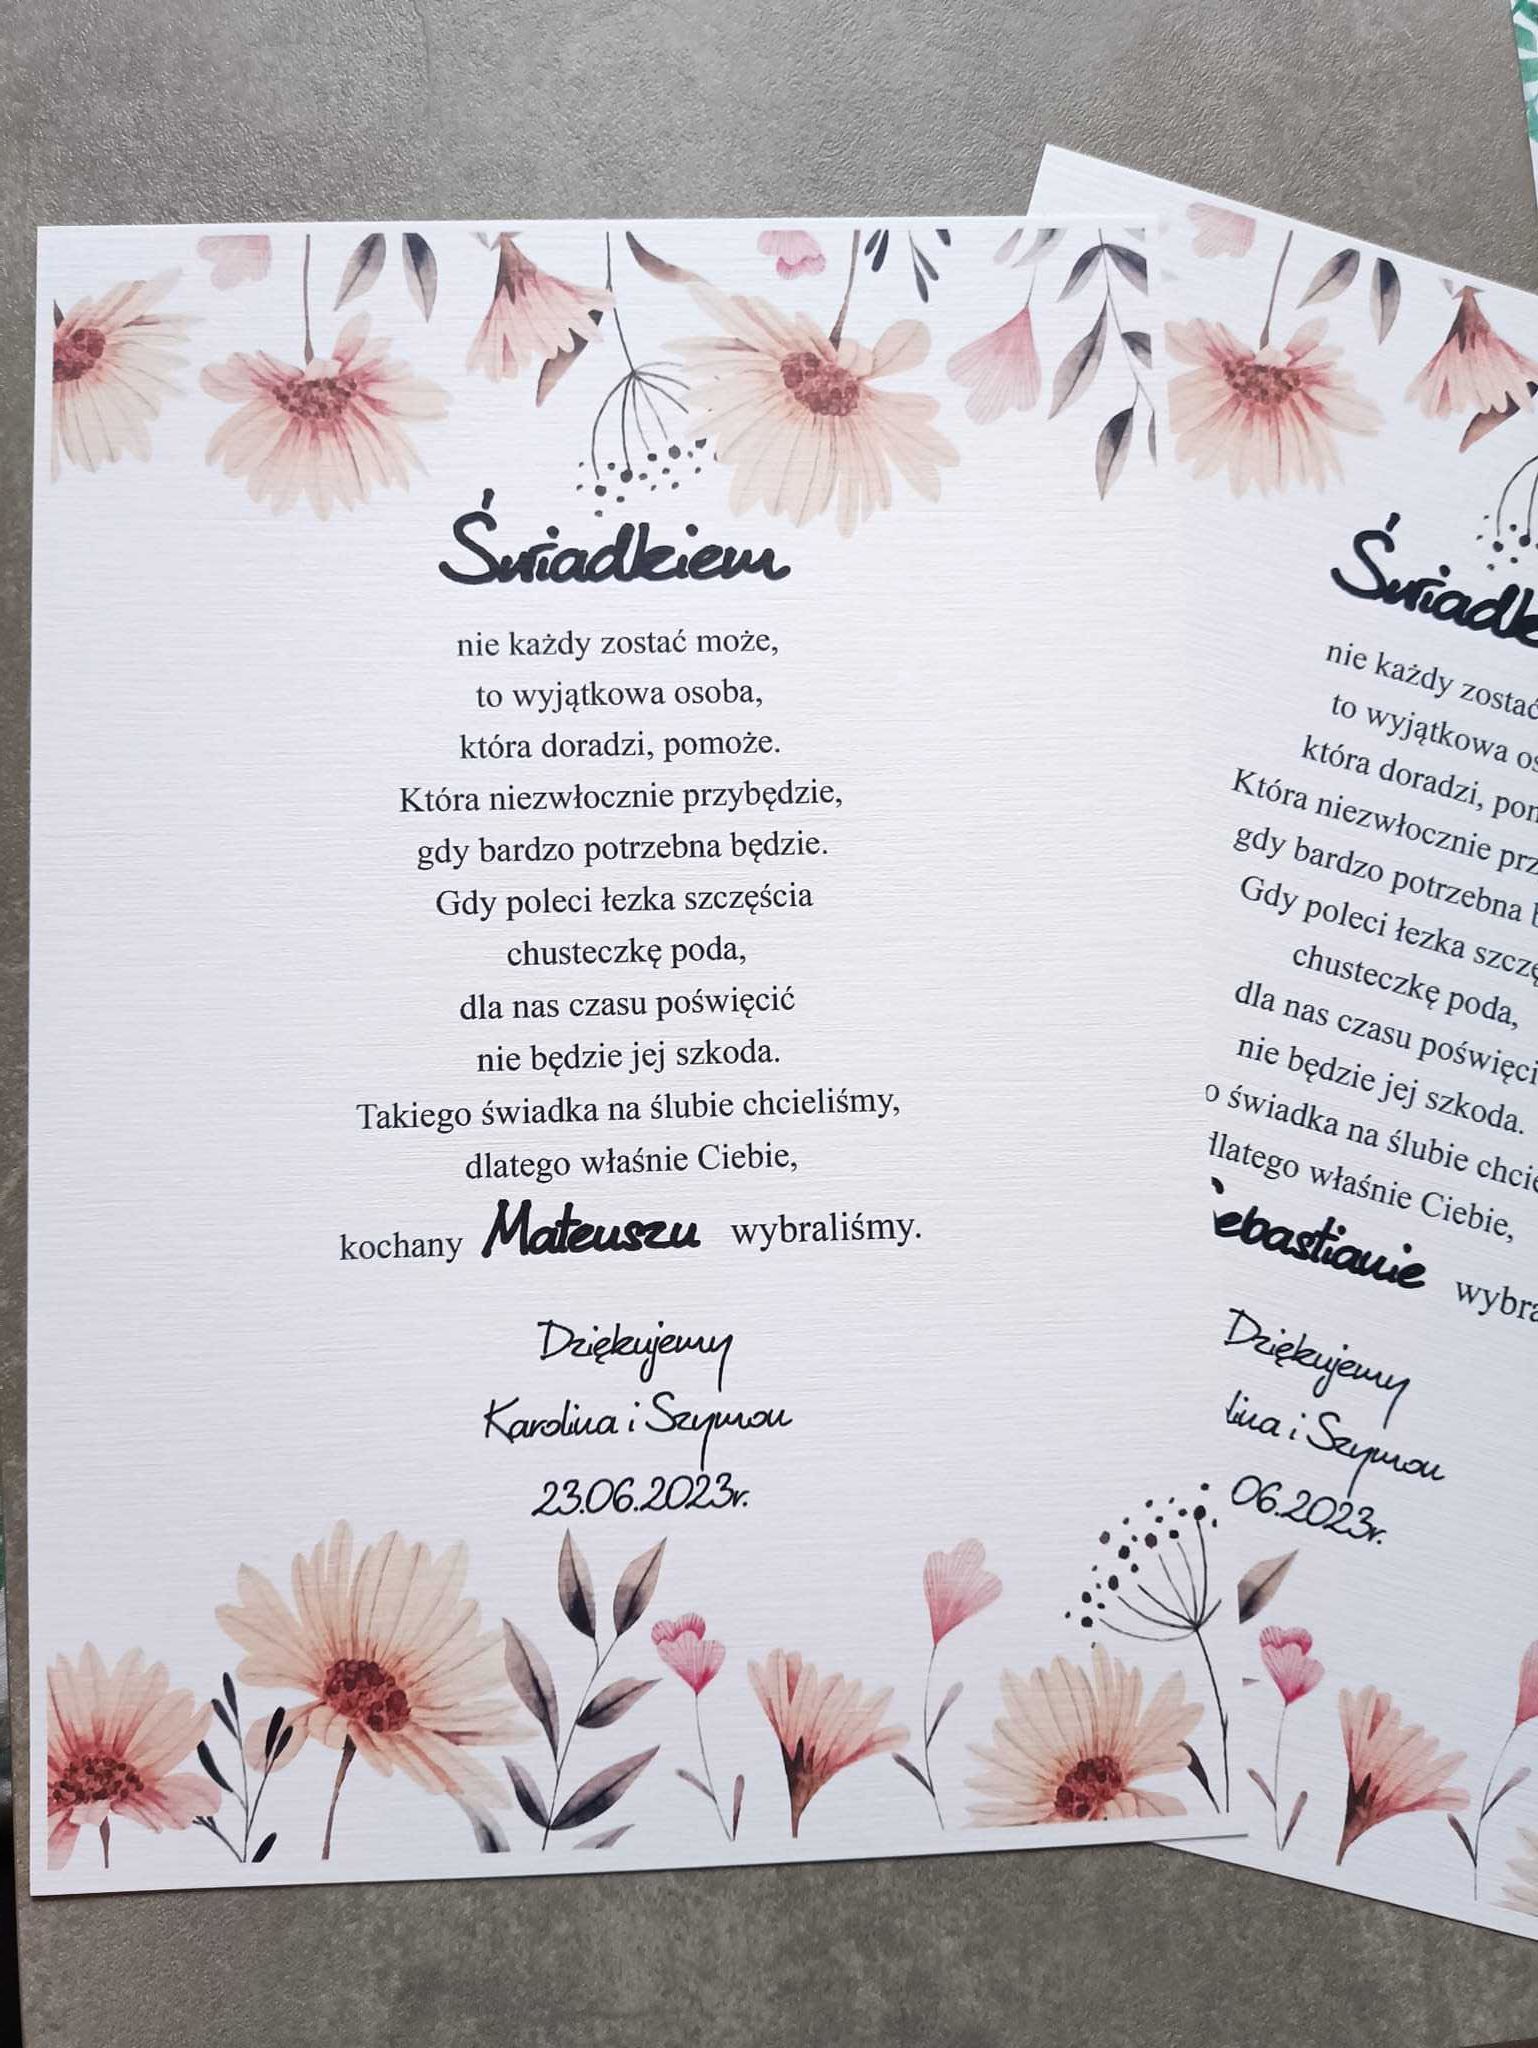 Świadkiem
nie każdy zostać może,
to wyjątkowa osoba,
która doradzi, pomoże.
Która niezwłocznie przybędzie,
gdy bardzo potrzebna będzie.
Gdy poleci łezka szczęścia
chusteczkę poda,
dla nas czasu poświęcić
nie będzie jej szkoda.
Takiego świadka na ślubie chcieliśmy,
dlatego właśnie Ciebie,
kochany Mateuszu wybraliśmy.
Dziękujemy
Karolina i Szymon
23.06.2023r.
nie każdy zostać
to wyjątkowa
która doradzi,
Która niezwłocznie
gdy bardzo potrzebna
Gdy poleci łezka
chusteczkę poda,
dla nas czasu
nie będzie jej szkoda.
świadka na ślubie
właśnie Ciebie,
Dziękujemy
i Szymon
06.2023r.